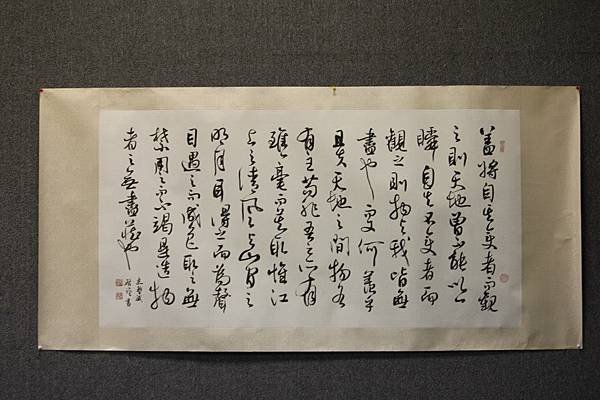 蓋將自其變者而觀
之則天地曾不能以一
瞬自其不變者而
觀之則物与我皆無
盡也又何羨乎
且夫天地之間物各
有主苟非吾之所有
雖一毫而莫取惟江
上之清風与山間之
明月耳得之而為聲
目遇之而成色取之無
禁用之不竭是造物
者之無盡藏也